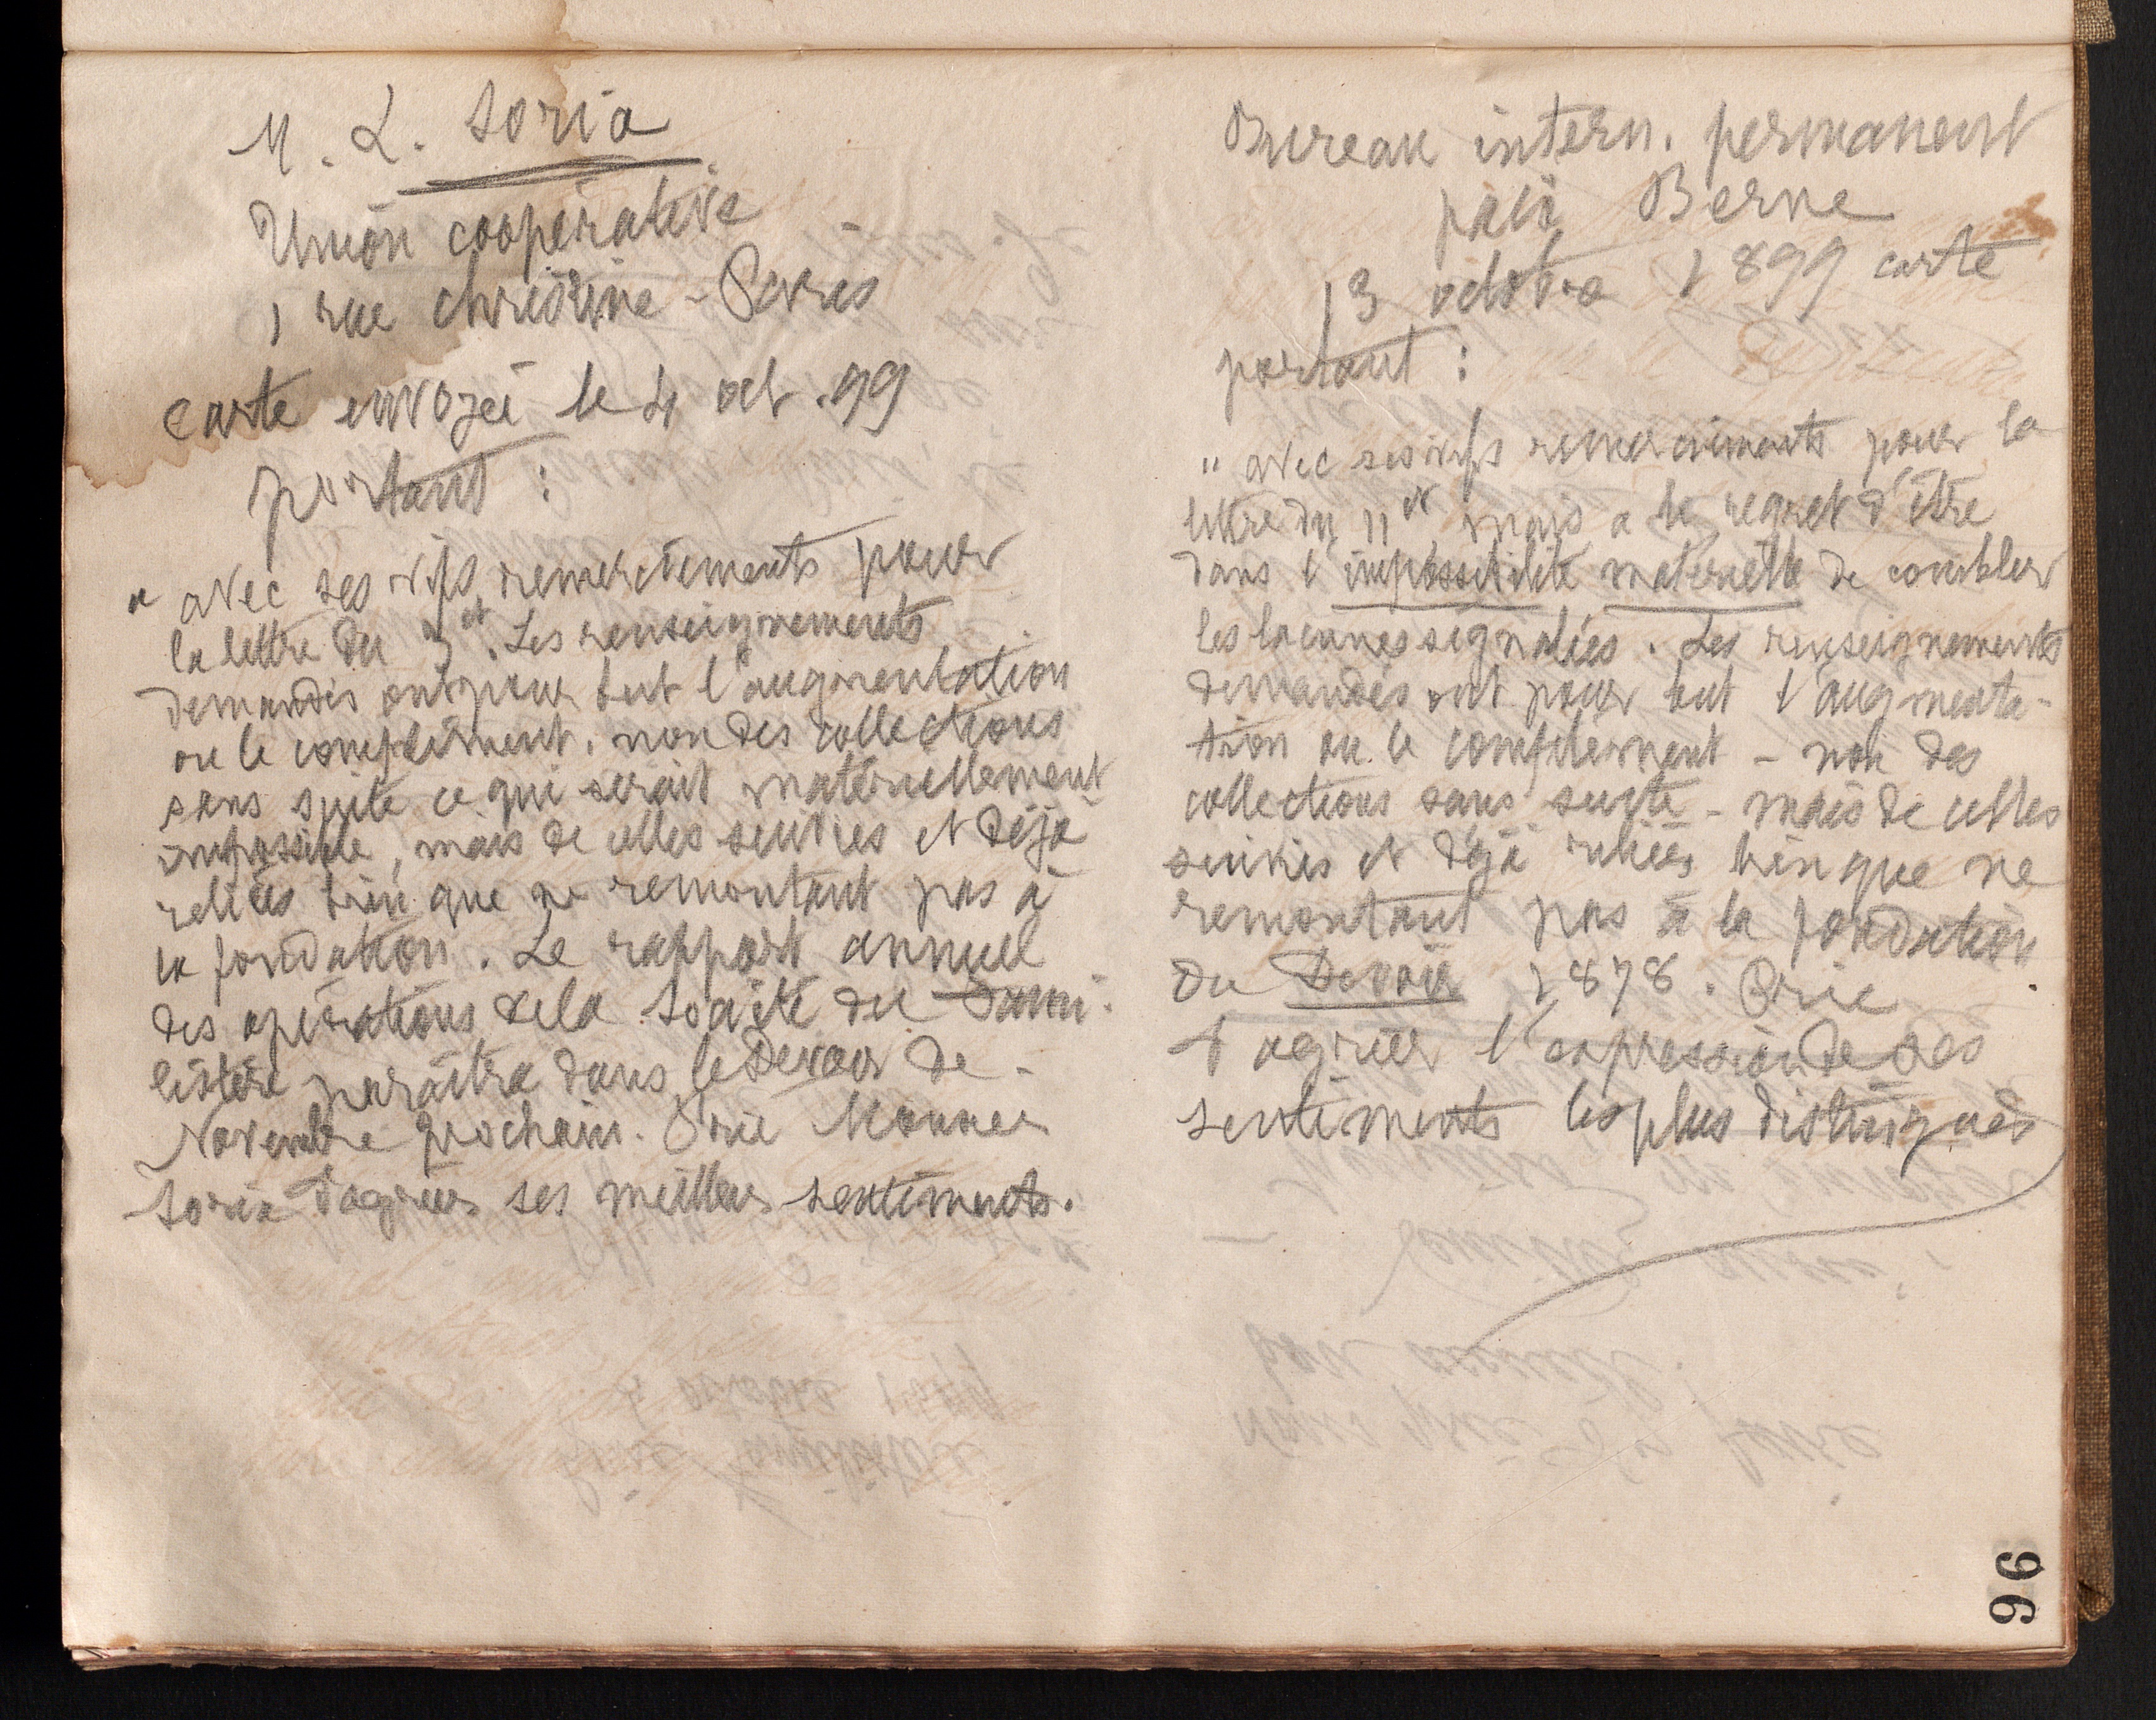 M. L. Soria
Union coopérative
1 rue Christine - Paris
Carte envoyée le 4 oct. 99
portant :
" avec ses vifs remerciements pour
la lettre du 3 ct. Les renseignements
demandés ont pour but l'augmentation
ou le complément, non des collections
sans suite ce qui serait matériellement
impossible, mais de celles suivies et déjà
reliées bien que ne remontant pas à
la fondation. Le rapport annuel
des opérations de la Société du Fami-
listère paraîtra dans le Devoir de
Novembre prochain. Prie Monsieur
Soria d'agréer ses meilleurs sentiments.
Bureau intern. permanent
paix Berne
13 octobre 1899 carte
portant :
" avec ses vifs remerciements pour la
lettre du 11 ct mais a le regret d'être
dans l'impossibilité matérielle de combler
les lacunes signalées. Les renseignements
demandés ont pour but l'augmenta-
tion ou le complément - non des
collections sans suite - mais de celles
suivies et déjà reliées bien que ne
remontant pas à la fondation
du Devoir 1878. Prie
d'agréer l'expression de ses
sentiments les plus distingués
96